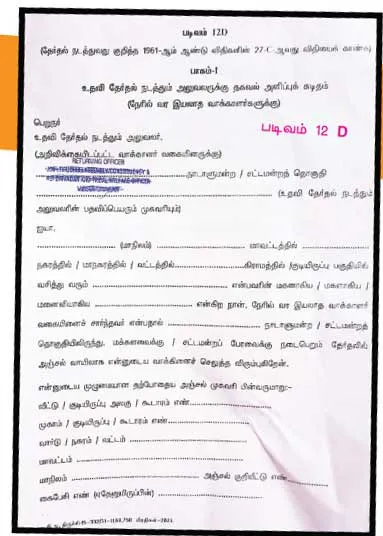 படிவம் 12D
(தேர்தல் நடத்துவது குறித்த 1961-ஆம் ஆண்டு விதிகளின் 27-C-ஆவது விதியைக் காண்க)
பாகம்-I
உதவி தேர்தல் நடத்தும் அலுவலருக்கு தகவல் அளிப்புக் கடிதம்
(நேரில் வர இயலாத வாக்காளர்களுக்கு)
பெறுநர்
படிவம் 12 D
உதவி தேர்தல் நடத்தும் அலுவலர்,
(அறிவிக்கையிடப்பட்ட வாக்காளர் வகையினருக்கு)
RETURNING OFFICER
நாடாளுமன்ற / சட்டமன்றத் தொகுதி
(உதவி தேர்தல் நடத்தும்
அலுவலரின் பதவிப்பெயரும் முகவரியும்)
ஐயா,
(மாநிலம்) மாவட்டத்தில்
நகரத்தில் / மாநகரத்தில் / வட்டத்தில் கிராமத்தில் /குடியிருப்பு பகுதியில்
வசித்து வரும் என்பவரின் மகனாகிய / மகளாகிய /
மனைவியாகிய என்கிற நான், நேரில் வர இயலாத வாக்காளர்
வகையினைச் சார்ந்தவர் என்பதால் நாடாளுமன்ற / சட்டமன்றத்
தொகுதியிலிருந்து, மக்களவைக்கு / சட்டமன்றப் பேரவைக்கு நடைபெறும் தேர்தலில்
அஞ்சல் வாயிலாக என்னுடைய வாக்கினைச் செலுத்த விரும்புகிறேன்.
என்னுடைய முழுமையான தற்போதைய அஞ்சல் முகவரி பின்வருமாறு:-
வீட்டு / குடியிருப்பு அலகு / கூடாரம் எண்
முகாம் / குடியிருப்பு / கூடாரம் எண்
வார்டு / நகரம் / வட்டம்
மாவட்டம்
மாநிலம் அஞ்சல் குறியீட்டு எண்
கைபேசி எண் (ஏதேனுமிருப்பின்)